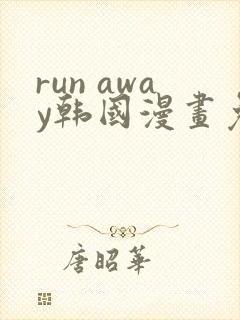 run awa
y韩國漫畫
唐昭華